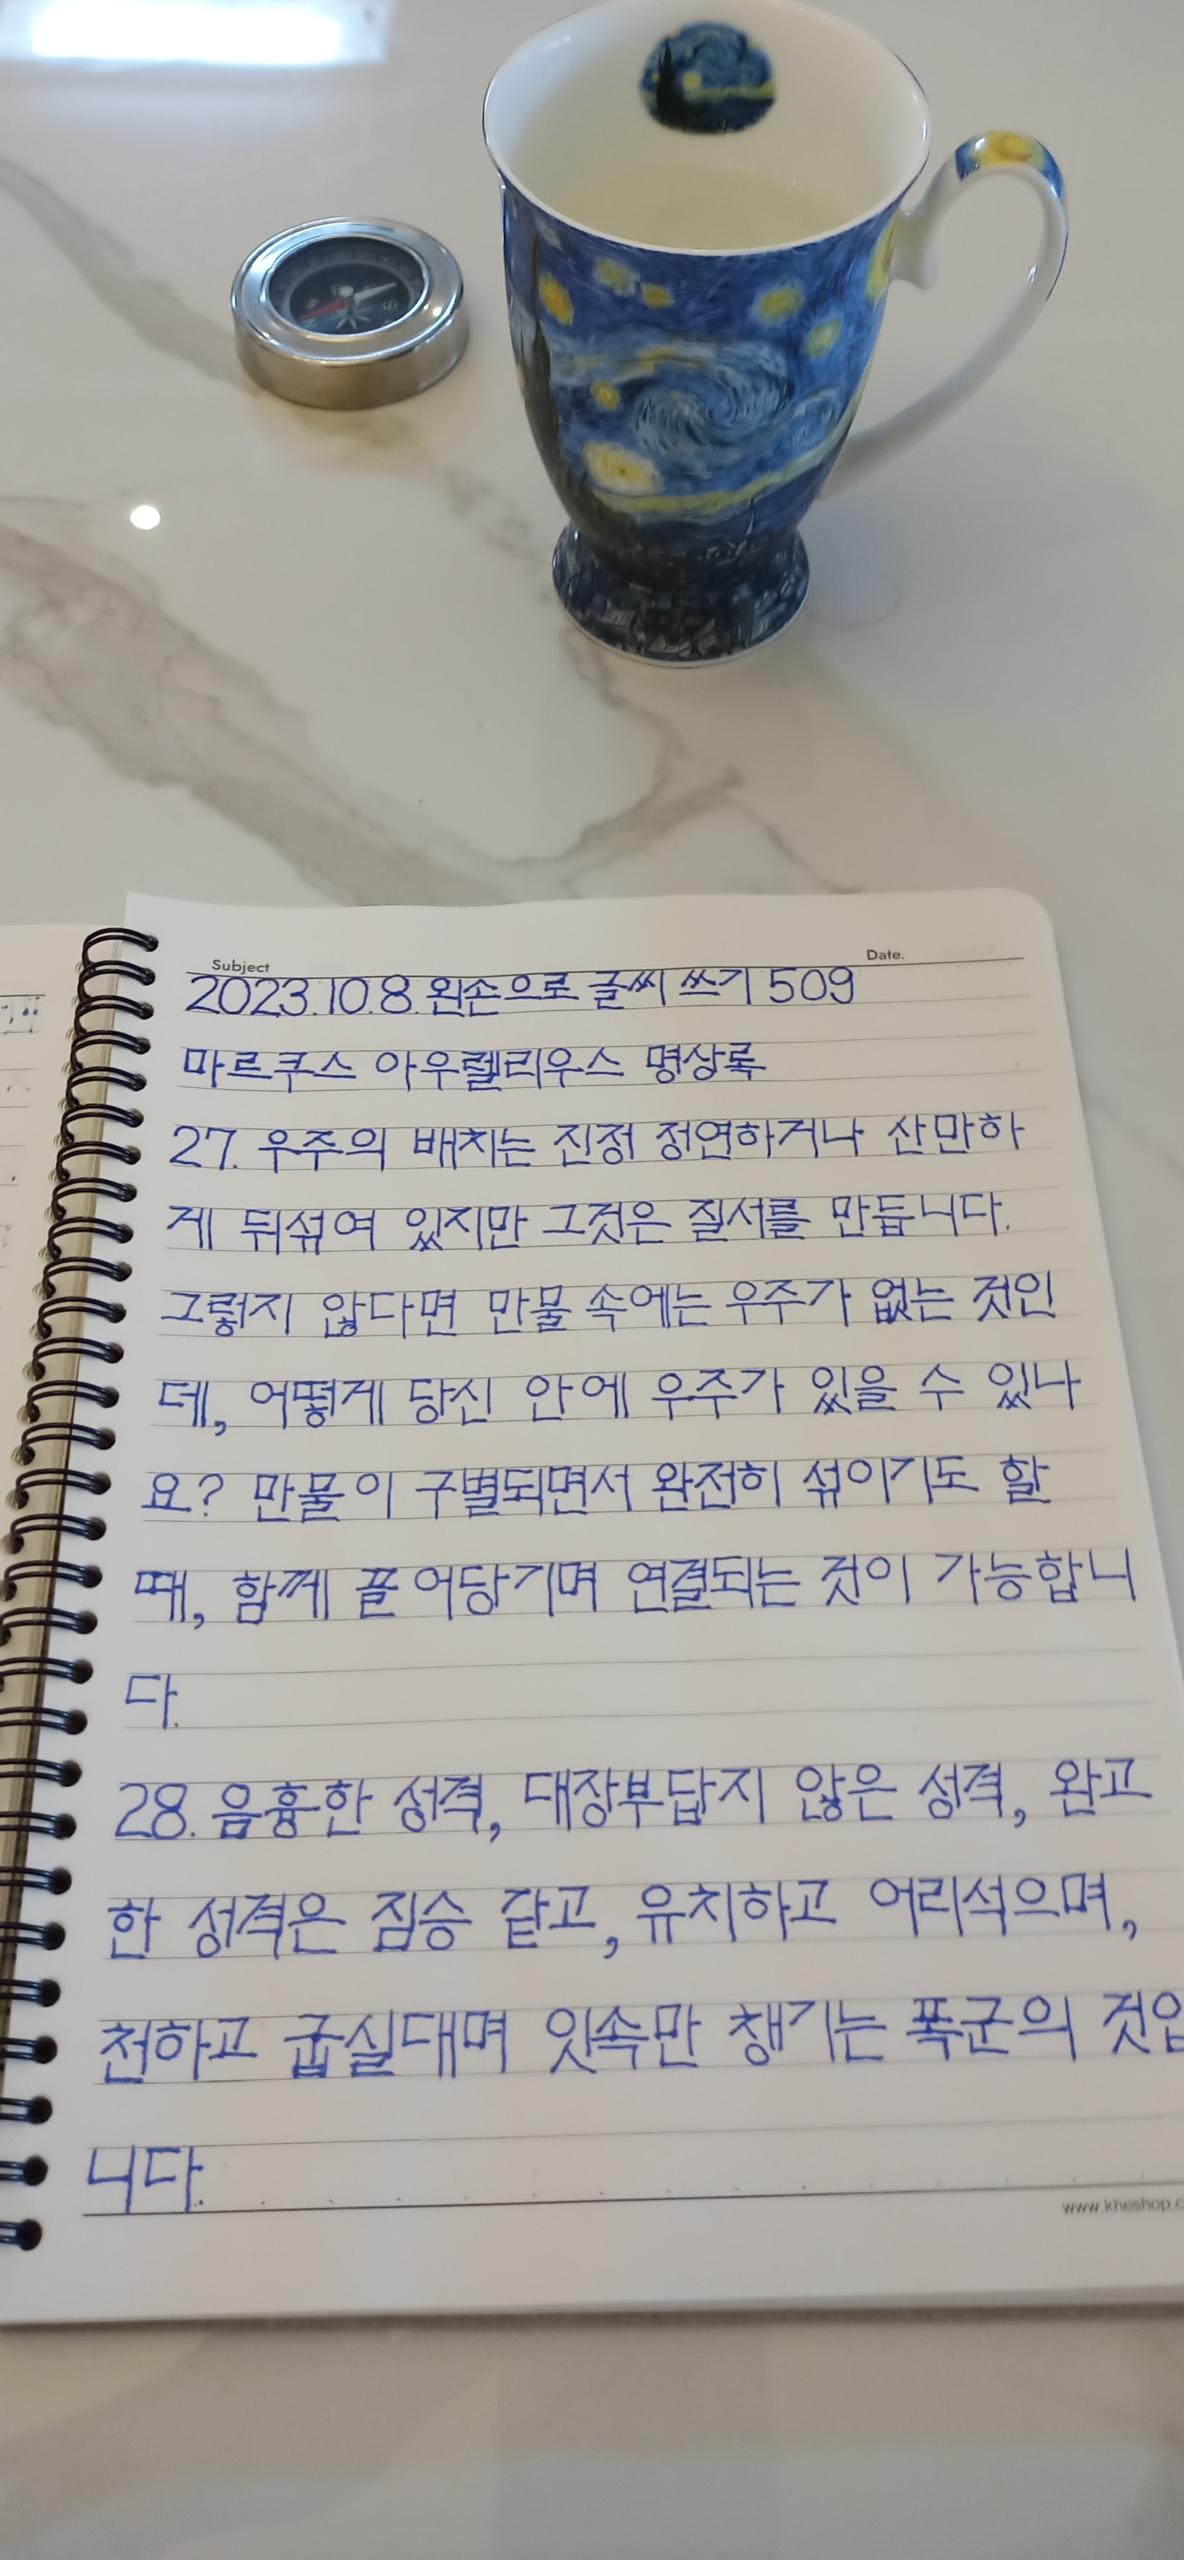 Subject
Date.
2023.10.8. 왼손으로 글씨 쓰기 509
마르쿠스 아우렐리우스 명상록
27. 우주의 배치는 진정 정연하거나 산만하
게 뒤섞여 있지만 그것은 질서를 만듭니다.
그렇지 않다면 만물 속에는 우주가 없는 것인
데, 어떻게 당신 안에 우주가 있을 수 있나
요? 만물이 구별되면서 완전히 섞이기도 할
때, 함께 끌어당기며 연결되는 것이 가능합니
다.
28. 음흉한 성격, 대장부답지 않은 성격, 완고
한 성격은 짐승 같고, 유치하고 어리석으며,
천하고 굽실대며 잇속만 챙기는 폭군의 것입
니다.